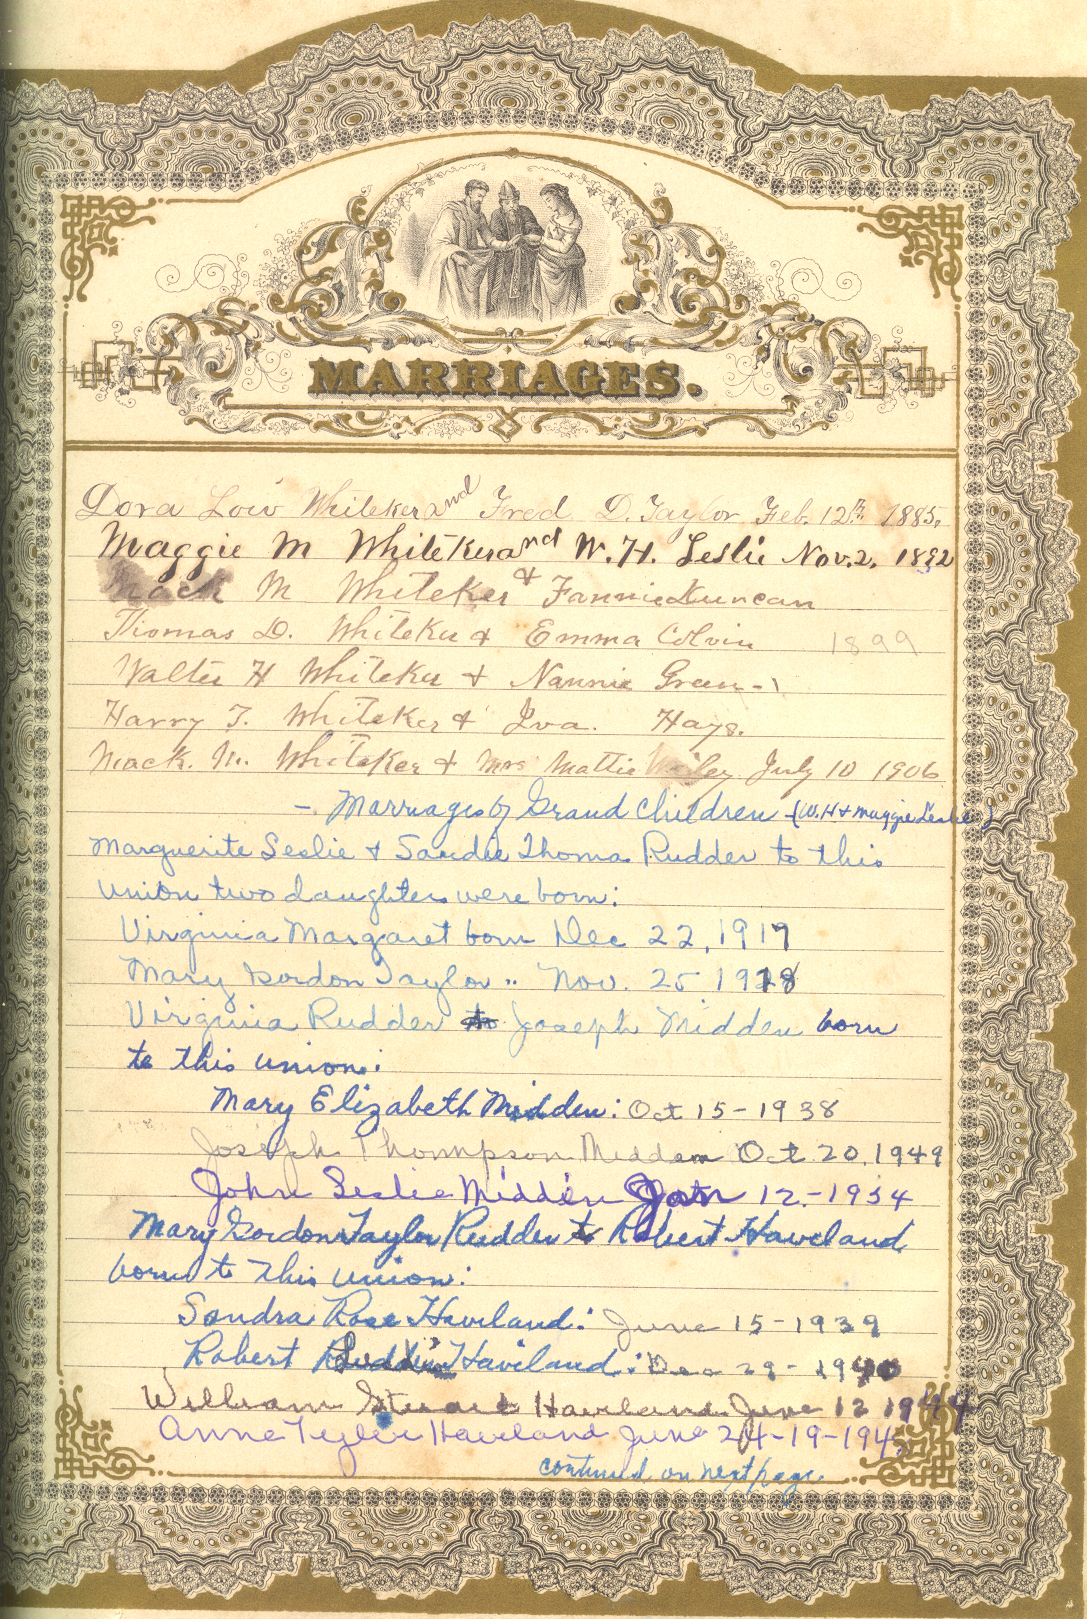 MARRIAGES.
Dora Low Whiteker and Fred D. Taylor Feb. 12th 1885.
Maggie M Whiteker and W. H. Leslie Nov. 2, 1892
Mack M Whiteker & Fannie Duncan
Thomas D. Whiteker & Emma Colvin 1899
Walter H Whiteker & Nannie Green -
Harry T. Whiteker & Iva. Hays.
Mack. M. Whiteker & Mrs Mattie Wiley July 10 1906
- Marriages of Grand Children - (W. H & Maggie Leslie)
Marguerite Leslie & Sandie Thoma Rudder to this
union two daughters were born:
Virginia Margaret born Dec 22, 1917
Mary Gordon Taylor " Nov. 25 1918
Virginia Rudder to Joseph Midden born
to this union:
Mary Elizabeth Midden: Oct 15 - 1938
Joseph Thompson Midden Oct 20, 1949
John Leslie Midden Jan 12 - 1954
Mary Gordon Taylor Rudder to Robert Haveland
born to this union:
Sandra Rose Haviland: June 15 - 1939
Robert Haviland: Dec 29 - 1940
William Stuart Haviland June 12 1944
Anne Tyler Haveland June 24-19-194
continued on next page.